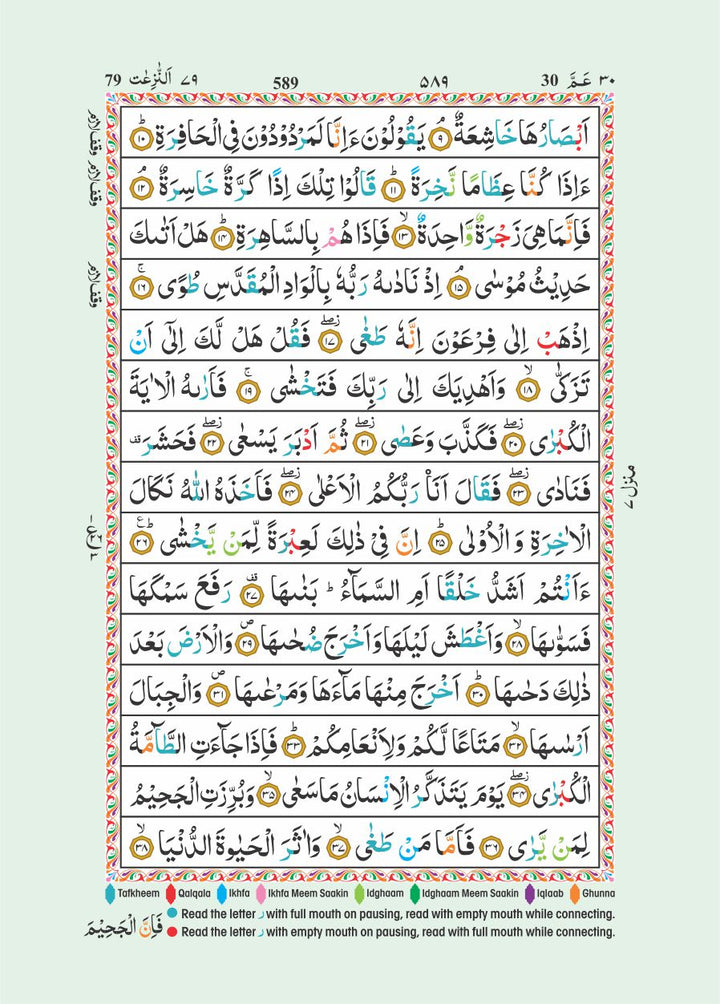 79 اَلنّٰزِعٰت ۷۹ 589 ۵۸۹ 30 عَمَّ ۳۰
اَبْصَارُهَا خَاشِعَةٌ ۘ﴿۹﴾ يَقُوْلُوْنَ ءَاِنَّا لَمَرْدُوْدُوْنَ فِى الْحَافِرَةِ ؕ﴿۱۰﴾
ءَاِذَا كُنَّا عِظَامًا نَّخِرَةً ؕ﴿۱۱﴾ قَالُوْا تِلْكَ اِذًا كَرَّةٌ خَاسِرَةٌ ۘ﴿۱۲﴾
فَاِنَّمَا هِىَ زَجْرَةٌ وَّاحِدَةٌ ۙ﴿۱۳﴾ فَاِذَا هُمْ بِالسَّاهِرَةِ ؕ﴿۱۴﴾ هَلْ اَتٰىكَ
حَدِيْثُ مُوْسٰى ۘ﴿۱۵﴾ اِذْ نَادٰىهُ رَبُّهٗ بِالْوَادِ الْمُقَدَّسِ طُوًى ۚ﴿۱۶﴾
اِذْهَبْ اِلٰى فِرْعَوْنَ اِنَّهٗ طَغٰى ۖ﴿۱۷﴾ فَقُلْ هَلْ لَّكَ اِلٰٓى اَنْ
تَزَكّٰى ۙ﴿۱۸﴾ وَاَهْدِيَكَ اِلٰى رَبِّكَ فَتَخْشٰى ۚ﴿۱۹﴾ فَاَرٰىهُ الْاٰيَةَ
الْكُبْرٰى ۖ﴿۲۰﴾ فَكَذَّبَ وَعَصٰى ۖ﴿۲۱﴾ ثُمَّ اَدْبَرَ يَسْعٰى ۖ﴿۲۲﴾ فَحَشَرَ قف
فَنَادٰى ۖ﴿۲۳﴾ فَقَالَ اَنَا۟ رَبُّكُمُ الْاَعْلٰى ۖ﴿۲۴﴾ فَاَخَذَهُ اللّٰهُ نَكَالَ
الْاٰخِرَةِ وَالْاُوْلٰى ؕ﴿۲۵﴾ اِنَّ فِىْ ذٰلِكَ لَعِبْرَةً لِّمَنْ يَّخْشٰى ؕ﴿۲۶﴾
ءَاَنْتُمْ اَشَدُّ خَلْقًا اَمِ السَّمَآءُ ؕ بَنٰىهَا ﴿۲۷﴾ رَفَعَ سَمْكَهَا
فَسَوّٰىهَا ۙ﴿۲۸﴾ وَاَغْطَشَ لَيْلَهَا وَاَخْرَجَ ضُحٰىهَا ۪﴿۲۹﴾ وَالْاَرْضَ بَعْدَ
ذٰلِكَ دَحٰىهَا ؕ﴿۳۰﴾ اَخْرَجَ مِنْهَا مَآءَهَا وَمَرْعٰىهَا ۪﴿۳۱﴾ وَالْجِبَالَ
اَرْسٰىهَا ۙ﴿۳۲﴾ مَتَاعًا لَّكُمْ وَلِاَنْعَامِكُمْ ؕ﴿۳۳﴾ فَاِذَا جَآءَتِ الطَّآمَّةُ
الْكُبْرٰى ۖ﴿۳۴﴾ يَوْمَ يَتَذَكَّرُ الْاِنْسَانُ مَا سَعٰى ۙ﴿۳۵﴾ وَبُرِّزَتِ الْجَحِيْمُ
لِمَنْ يَّرٰى ﴿۳۶﴾ فَاَمَّا مَنْ طَغٰى ۙ﴿۳۷﴾ وَاٰثَرَ الْحَيٰوةَ الدُّنْيَا ۙ﴿۳۸﴾
وقف لازم
وقف لازم
وقف لازم
منزل ۷
Tafkheem Qalqala Ikhfa Ikhfa Meem Saakin Idghaam Idghaam Meem Saakin Iqlaab Ghunna
Read the letter ر with full mouth on pausing, read with empty mouth while connecting.
Read the letter ر with empty mouth on pausing, read with full mouth while connecting.
فَاِنَّ الْجَحِيْمَ